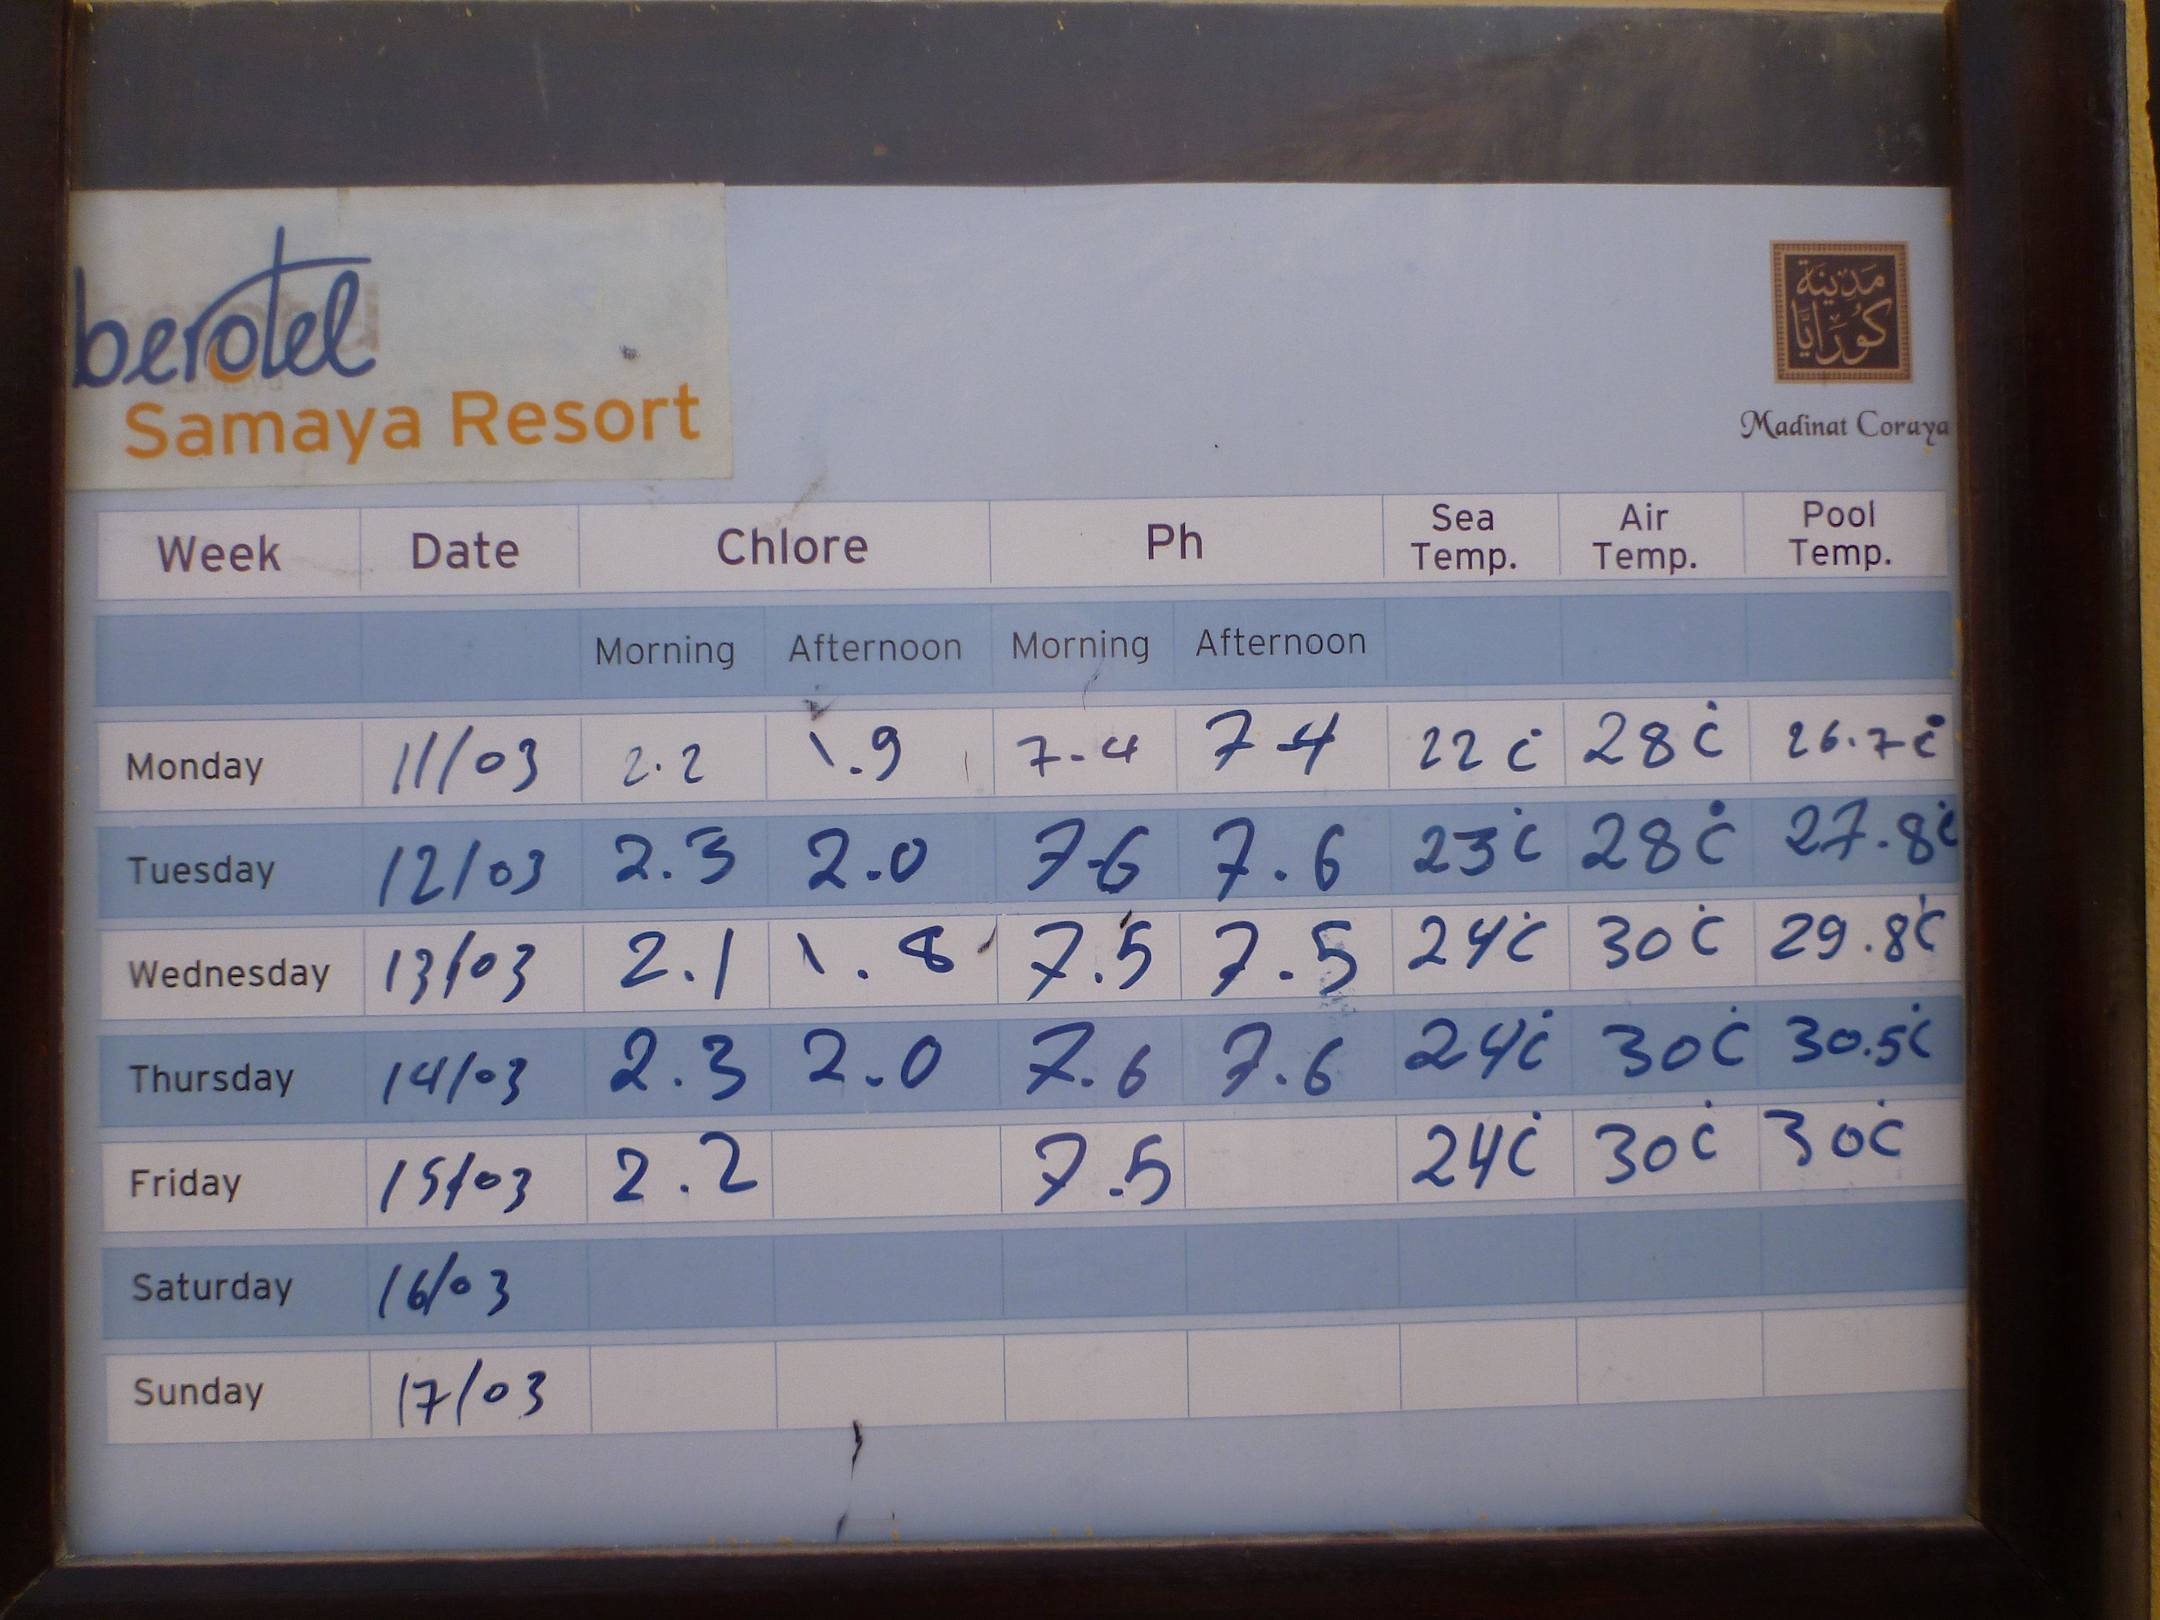 berotel
Samaya Resort
مدينة
كورايا
Madinat Coraya
Week Date Chlore Ph Sea Temp. Air Temp. Pool Temp.
Morning Afternoon Morning Afternoon
Monday 11/03 2.2 1.9 7.4 7.4 22°C 28°C 26.7°C
Tuesday 12/03 2.3 2.0 7.6 7.6 23°C 28°C 27.8°C
Wednesday 13/03 2.1 1.8 7.5 7.5 24°C 30°C 29.8°C
Thursday 14/03 2.3 2.0 7.6 7.6 24°C 30°C 30.5°C
Friday 15/03 2.2 7.5 24°C 30°C 30°C
Saturday 16/03
Sunday 17/03